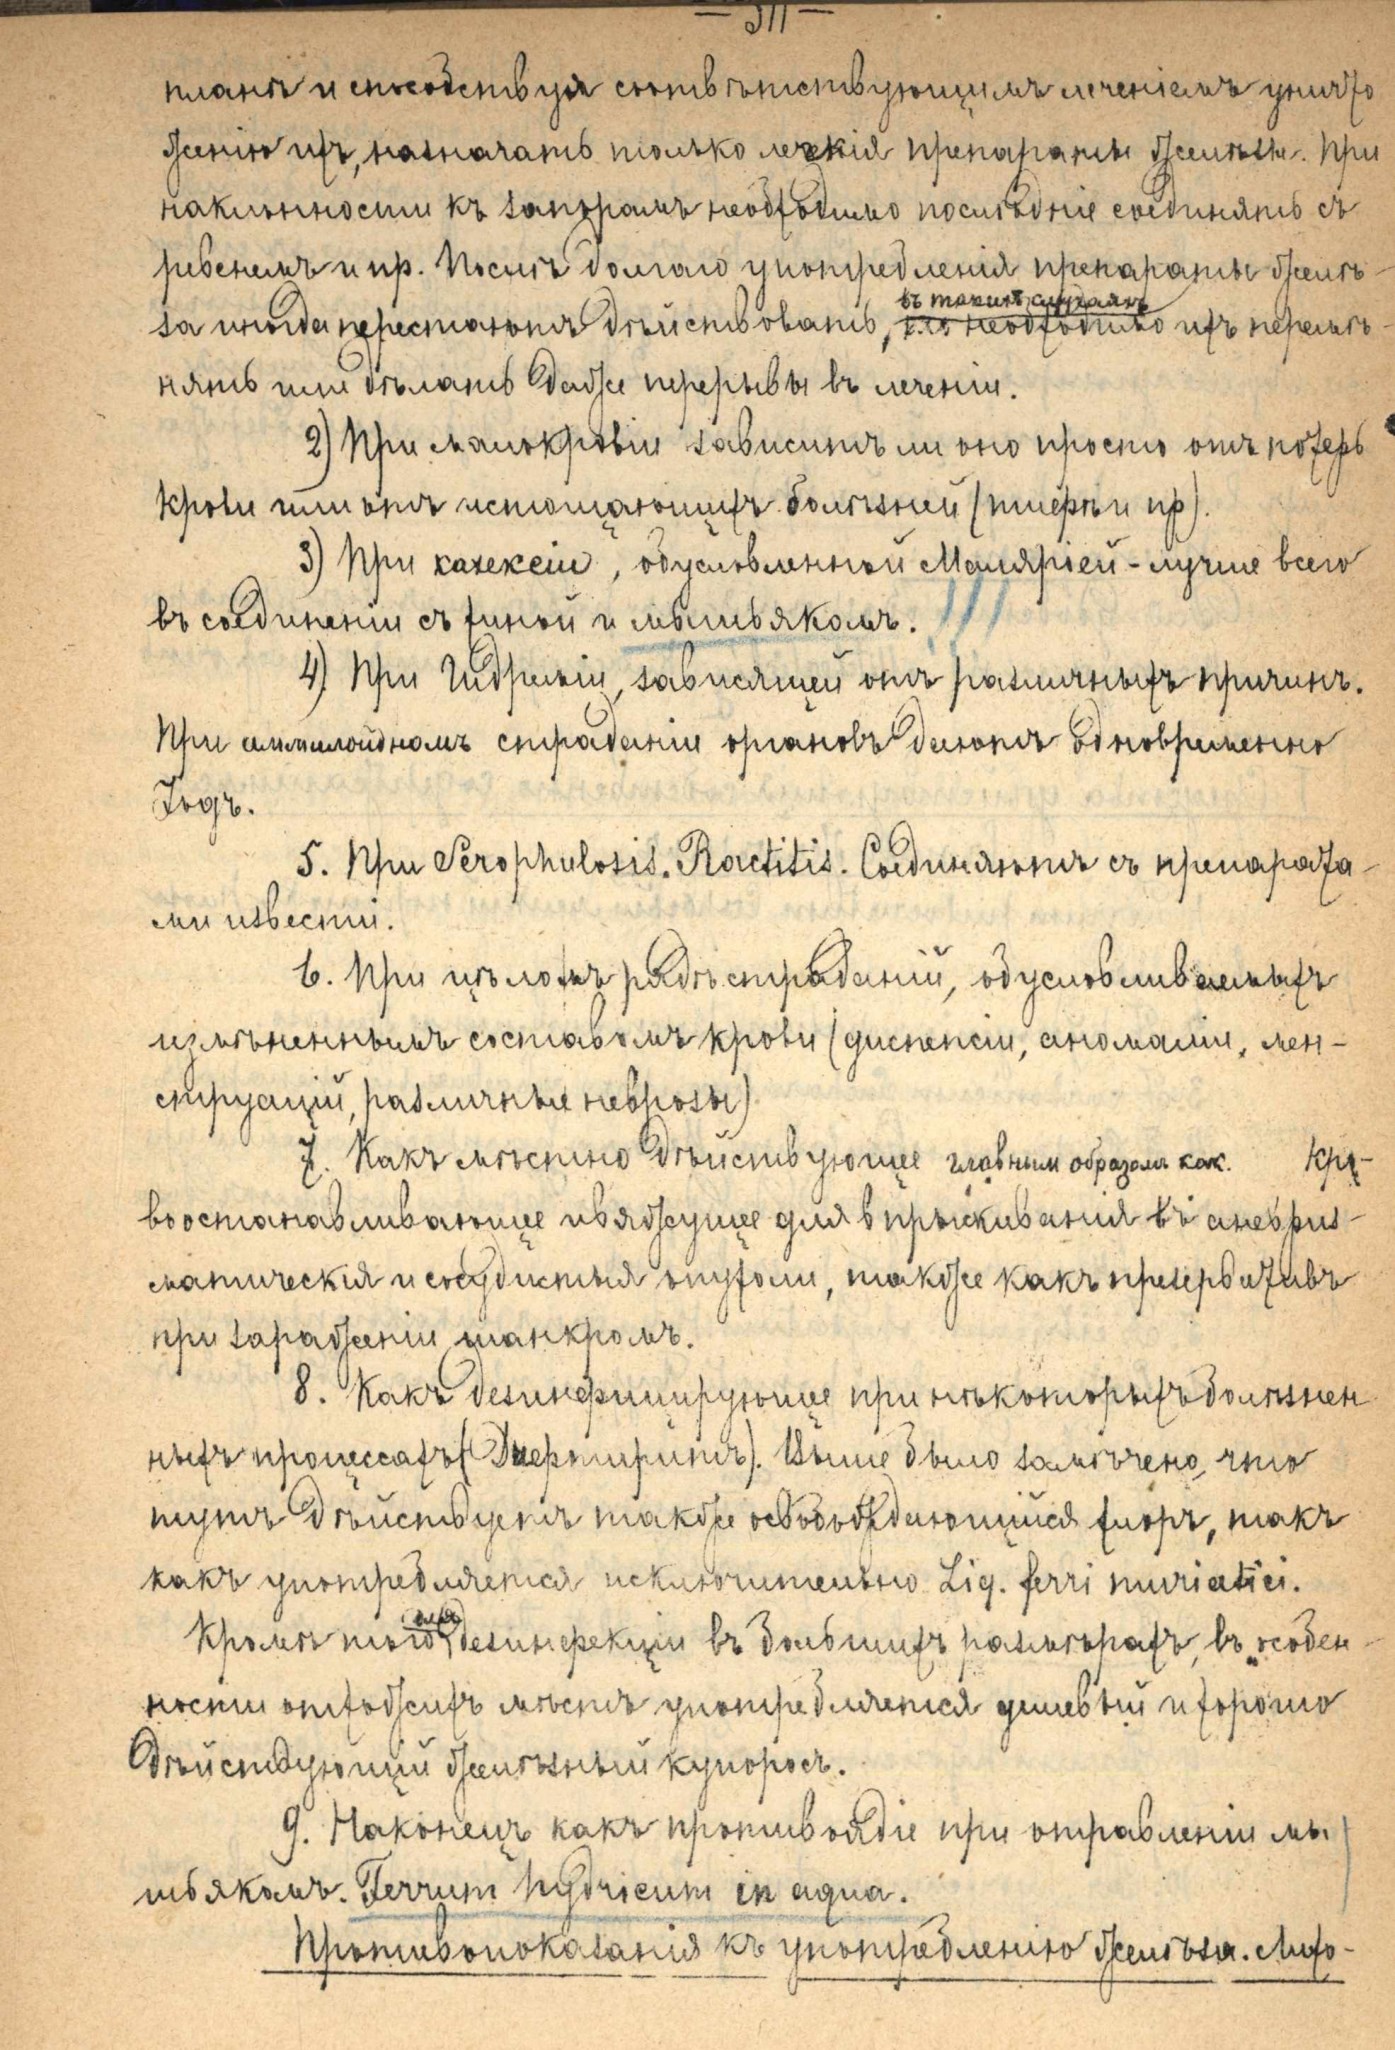 — 311 —
планѣ и способствуя соотвѣтствующимъ леченіемъ уничто
женію ихъ, назначать только легкія препараты желѣза. При
наклонности къ запорамъ необходимо послѣдніе соединять съ
ревенемъ и пр. Послѣ долгаго употребленія препараты желѣ-
за иногда перестаютъ дѣйствовать, въ такихъ случаяхъ необходимо ихъ перемѣ-
нять или дѣлать даже перерывы въ леченіи.
2) При малокровіи зависитъ ли оно просто отъ потерь
крови или отъ истощающихъ болѣзней (тифъ и пр).
3) При кахексіи, обусловленной Маляріей - лучше всего
въ соединеніи съ хиной и мышьякомъ.
4) При Гидреміи, зависящей отъ различныхъ причинъ.
При аммилоидномъ страданіи органовъ даютъ одновременно
Іодъ.
5. При Scrophulosis. Rachitis. Соединяютъ съ препарата-
ми извести.
6. При цѣломъ рядѣ страданій, обусловливаемыхъ
измѣненнымъ составомъ крови (диспепсіи, аномаліи, мен-
струацій, различные неврозы)
7. Какъ мѣстно дѣйствующее главным образом как. Кро-
воостанавливающее и вяжущее для впрыскиванія въ аневриз-
матическія и сосудистыя опухоли, также какъ презервативъ
при зараженіи шанкромъ.
8. Какъ дезинфицирующее при нѣкоторыхъ болѣзнен
ныхъ процессахъ (Дифтеритъ). Выше было замѣчено, что
тутъ дѣйствуетъ также освобождающійся хлоръ, такъ
какъ употребляется исключительно Liq. ferri muriatici.
Кромѣ того, для дезинфекціи въ большихъ размѣрахъ, въ особен-
ности отхожихъ мѣстъ употребляется дешевый и хорошо
дѣйствующій желѣзный купоросъ.
9. Наконецъ какъ противоядіе при отравленіи мы
шьякомъ. Ferrum hydricum in aqua.
Противопоказанія къ употребленію желѣза. Лихо-